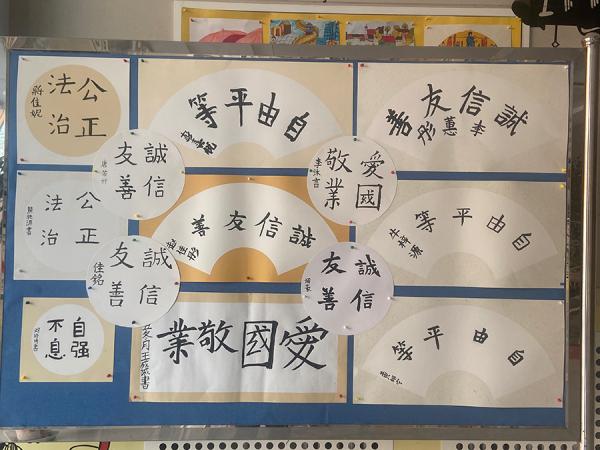 公正
法治
蔣佳妮
自由平等
誠信友善
李蕙彤
誠信
友善
愛國
敬業
李沐言
公正
法治
誠信友善
自由平等
牛梓源
誠信
友善
佳銘
誠信
友善
自强
不息
愛國敬業
自由平等